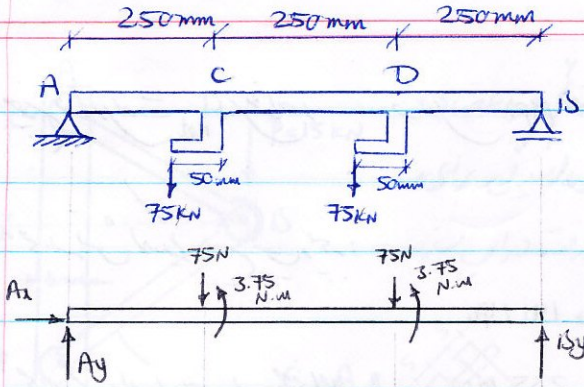 250mm 250mm 250mm
A C D B
50mm 50mm
75KN 75KN
75N 75N
3.75 N.m 3.75 N.m
Ax
Ay By